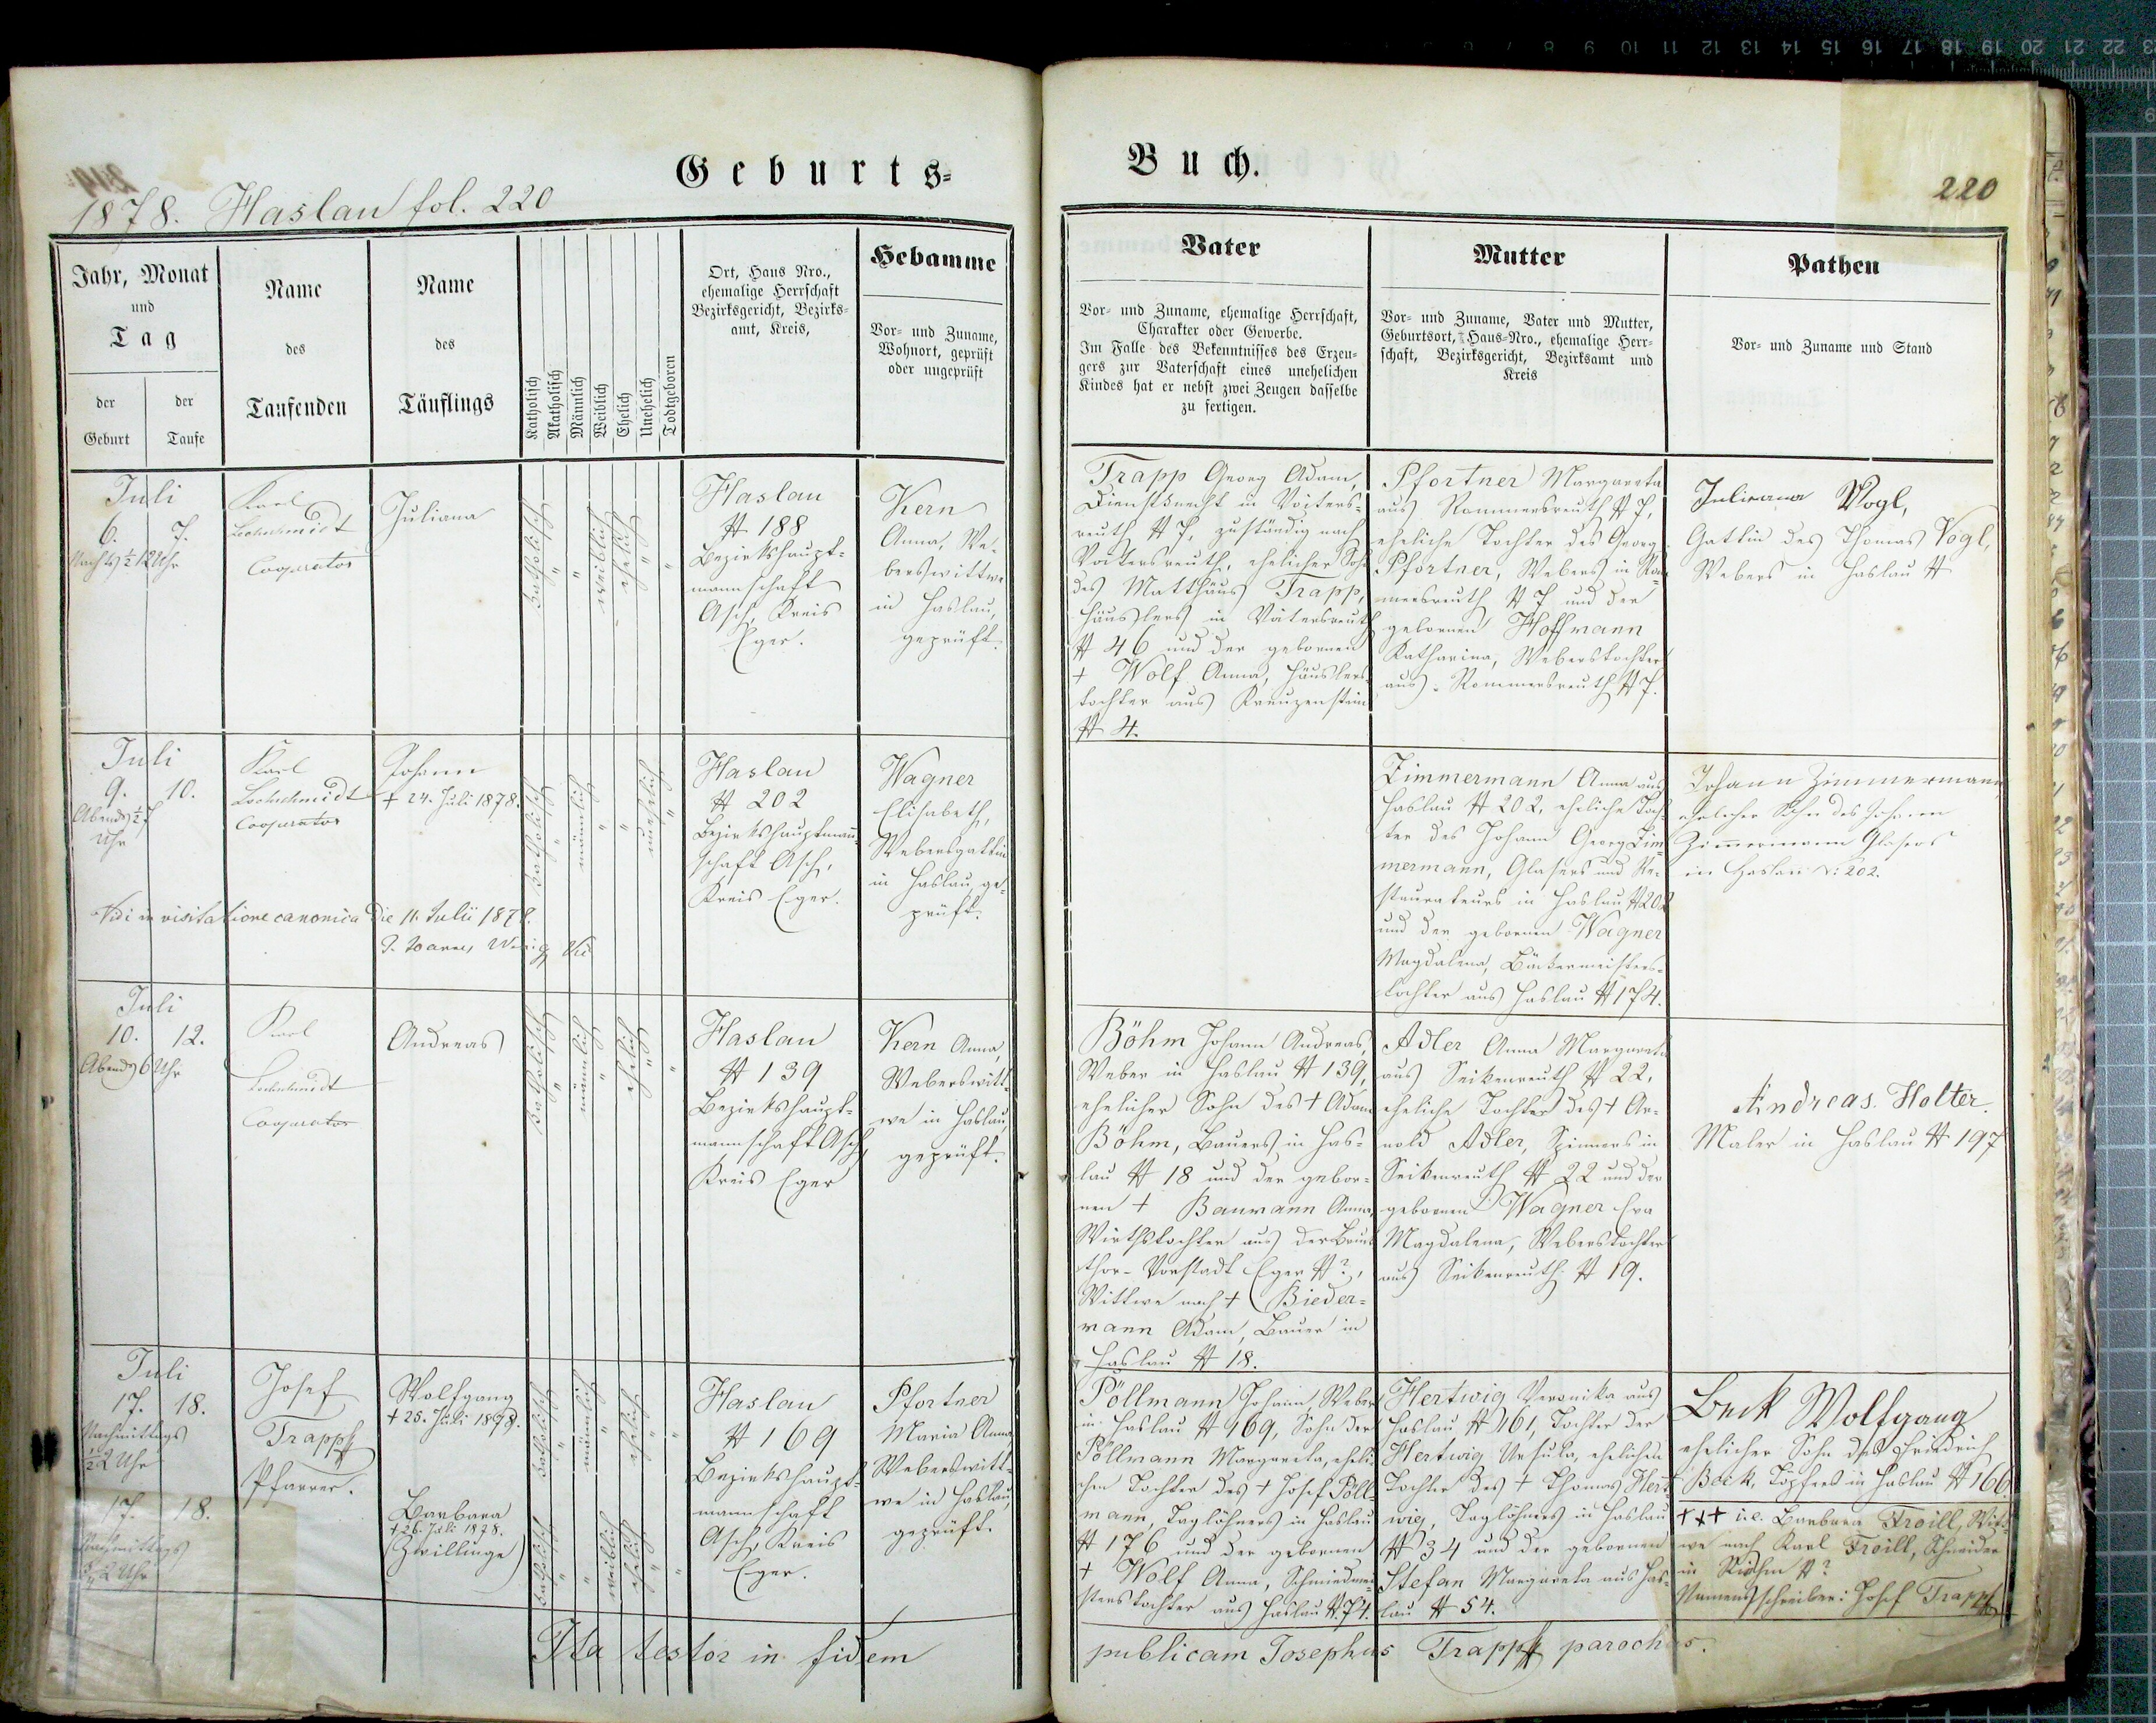 Geburts-
Buch.
1878. Haslau fol. 220
220
Jahr, Monat
und
Tag
der
Geburt
der
Taufe
Name
des
Taufenden
Name
des
Täuflings
Katholisch
Akatholisch
Männlich
Weiblich
Ehelich
Unehelich
Todtgeboren
Ort, Haus Nro.,
ehemalige Herrschaft
Bezirksgericht, Bezirks-
amt, Kreis,
Hebamme
Vor- und Zuname,
Wohnort, geprüft
oder ungeprüft
Vater
Vor- und Zuname, ehemalige Herrschaft,
Charakter oder Gewerbe.
Im Falle des Bekenntnisses des Erzeu-
gers zur Vaterschaft eines unehelichen
Kindes hat er nebst zwei Zeugen dasselbe
zu fertigen.
Mutter
Vor- und Zuname, Vater und Mutter,
Geburtsort, Haus-Nro., ehemalige Herr-
schaft, Bezirksgericht, Bezirksamt und
Kreis
Pathen
Vor- und Zuname und Stand
Juli
6. 7.
Nachts ½12 Uhr
Karl
Lochschmidt
Cooperator
Juliana
katholisch
"
"
weiblich
ehelich
"
"
Haslau
# 188
Bezirkshaupt-
mannschaft
Asch, Kreis
Eger.
Kern
Anna, We-
berswittwe
in Haslau,
geprüft.
Trapp Georg Adam,
Dienstknecht in Voiters-
reuth # 7, zuständig nach
Voitersreuth, ehelicher Sohn
des Matthäus Trapp,
Häuslers in Voitersreuth
# 46 und der gebornen
+ Wolf Anna, Häuslers-
tochter aus Kreuzenstein
# 4.
Pfortner Margareta
aus Rommersreuth # 7,
eheliche Tochter des Georg
Pfortner, Webers in Rom-
mersreuth # 7 und der
gebornen Hoffmann
Katharina, Weberstochter
aus Rommersreuth # 7.
Juliana Vogl,
Gattin des Thomas Vogl,
Webers in Haslau #
Juli
9. 10.
Abends ½7
Uhr
Karl
Lochschmidt
Cooperator
Johann
+ 24. Juli 1878.
katholisch
"
männlich
"
"
unehelich
"
Haslau
# 202
Bezirkshauptmann-
schaft Asch,
Kreis Eger.
Wagner
Elisabeth,
Webersgattin
in Haslau, ge-
prüft.
Zimmermann Anna aus
Haslau # 202, eheliche Toch-
ter des Johann Georg Zim-
mermann, Glasers und Re-
staurateurs in Haslau # 202
und der gebornen Wagner
Magdalena, Bäckermeisters-
tochter aus Haslau # 174.
Johann Zimmermann
ehelicher Sohn des Johann
Zimmermann Glasers
in Haslau N: 202.
Vidi in visitatione canonica die 11. Julii 1878.
Juli
10. 12.
Abends 6 Uhr
Karl
Lochschmidt
Cooperator
Andreas
katholisch
"
männlich
"
ehelich
"
"
Haslau
# 139
Bezirkshaupt-
mannschaft Asch,
Kreis Eger
Kern Anna,
Weberswitt-
we in Haslau,
geprüft.
Böhm Johann Andreas,
Weber in Haslau # 139,
ehelicher Sohn des + Adam
Böhm, Bauers in Has-
lau # 18 und der gebor-
nen + Baumann Anna,
Wirthstochter aus der Bruck-
thor-Vorstadt Eger #?,
Wittwe nach + Bieder-
mann Adam, Bauer in
Haslau # 18.
Adler Anna Margareta
aus Seikenreuth # 22,
eheliche Tochter des + Ar-
nold Adler, Spinners in
Seikenreuth # 22 und der
gebornen Wagner Eva
Magdalena, Weberstochter
aus Seikenreuth # 19.
Andreas. Holter.
Maler in Haslau # 197
Juli
17. 18.
Nachmittags
½2 Uhr
Josef
Trapp
Pfarrer.
Wolfgang
+ 25. Juli 1878.
katholisch
"
männlich
"
ehelich
"
"
17. 18.
Nachmittags
¾2 Uhr
Barbara
+ 26. Juli 1878.
(Zwillinge)
katholisch
"
"
weiblich
ehelich
"
"
Haslau
# 169
Bezirkshaupt-
mannschaft
Asch, Kreis
Eger.
Pfortner
Maria Anna,
Weberswitt-
we in Haslau,
geprüft.
Pöllmann Johann, Weber
in Haslau # 169, Sohn der
Pöllmann Margareta, eheli-
chen Tochter des + Josef Pöll-
mann, Taglöhners in Haslau
# 176 und der gebornen
+ Wolf Anna, Schmiedmei-
sterstochter aus Haslau # 74.
Hertwig Veronika aus
Haslau # 161, Tochter der
Hertwig Ursula, ehelichen
Tochter des + Thomas Hert-
wig, Taglöhners in Haslau
# 34 und der gebornen
Stefan Margareta aus Has-
lau # 54.
Beck Wolfgang
ehelicher Sohn des Friedrich
Beck, Töpfers in Haslau # 166.
+++ i.e. Barbara Froill, Witt-
we nach Karl Froill, Schneider
in #?
Namensschreiber: Josef Trapp
Ita testor in fidem publicam Josephus Trapp parochus.